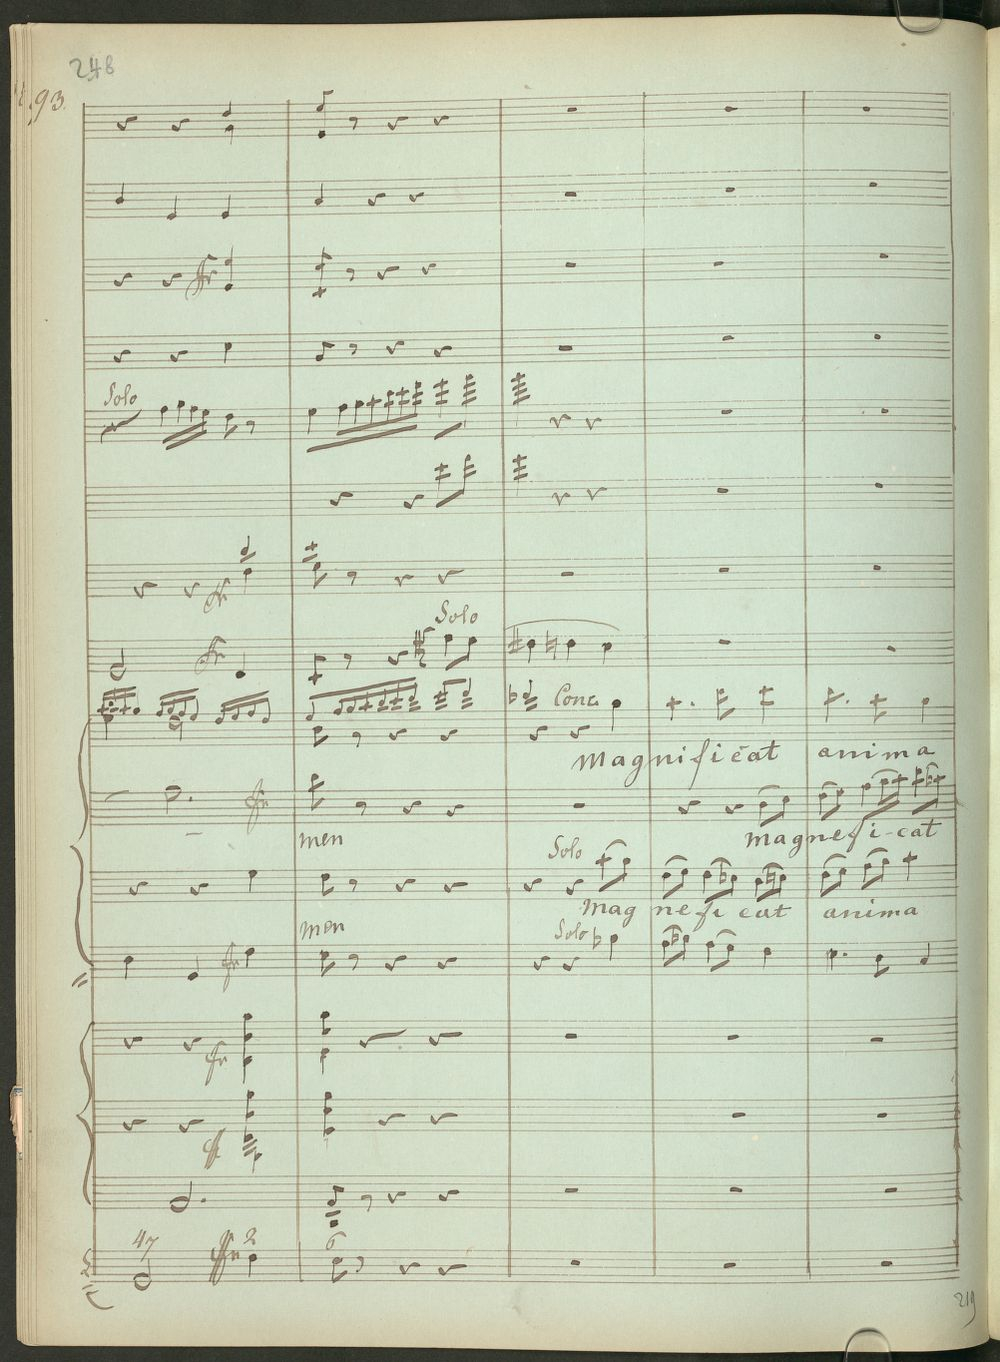 248
93.
Solo
fr
Solo
Conc.
magnificat anima
men
magnefi-cat
Solo
magneficat anima
men
Solo
47
2
6
219